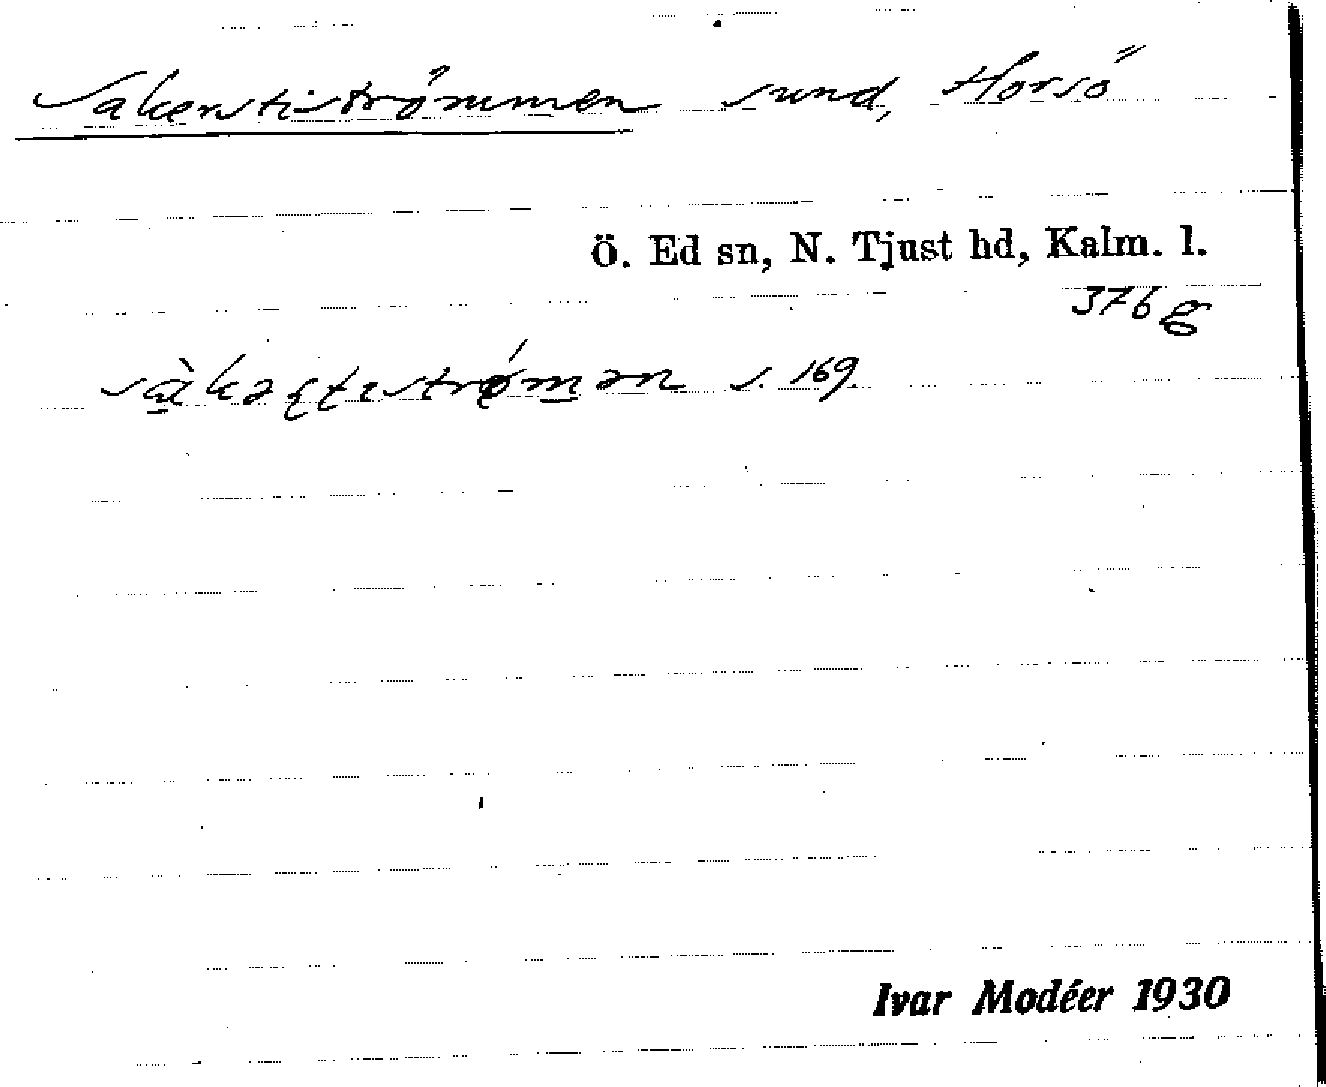 Sakerstiströmmen sund, Horsö
Ö. Ed sn, N. Tjust hd, Kalm. l.
376 g
s. 169
Ivar Modéer 1930